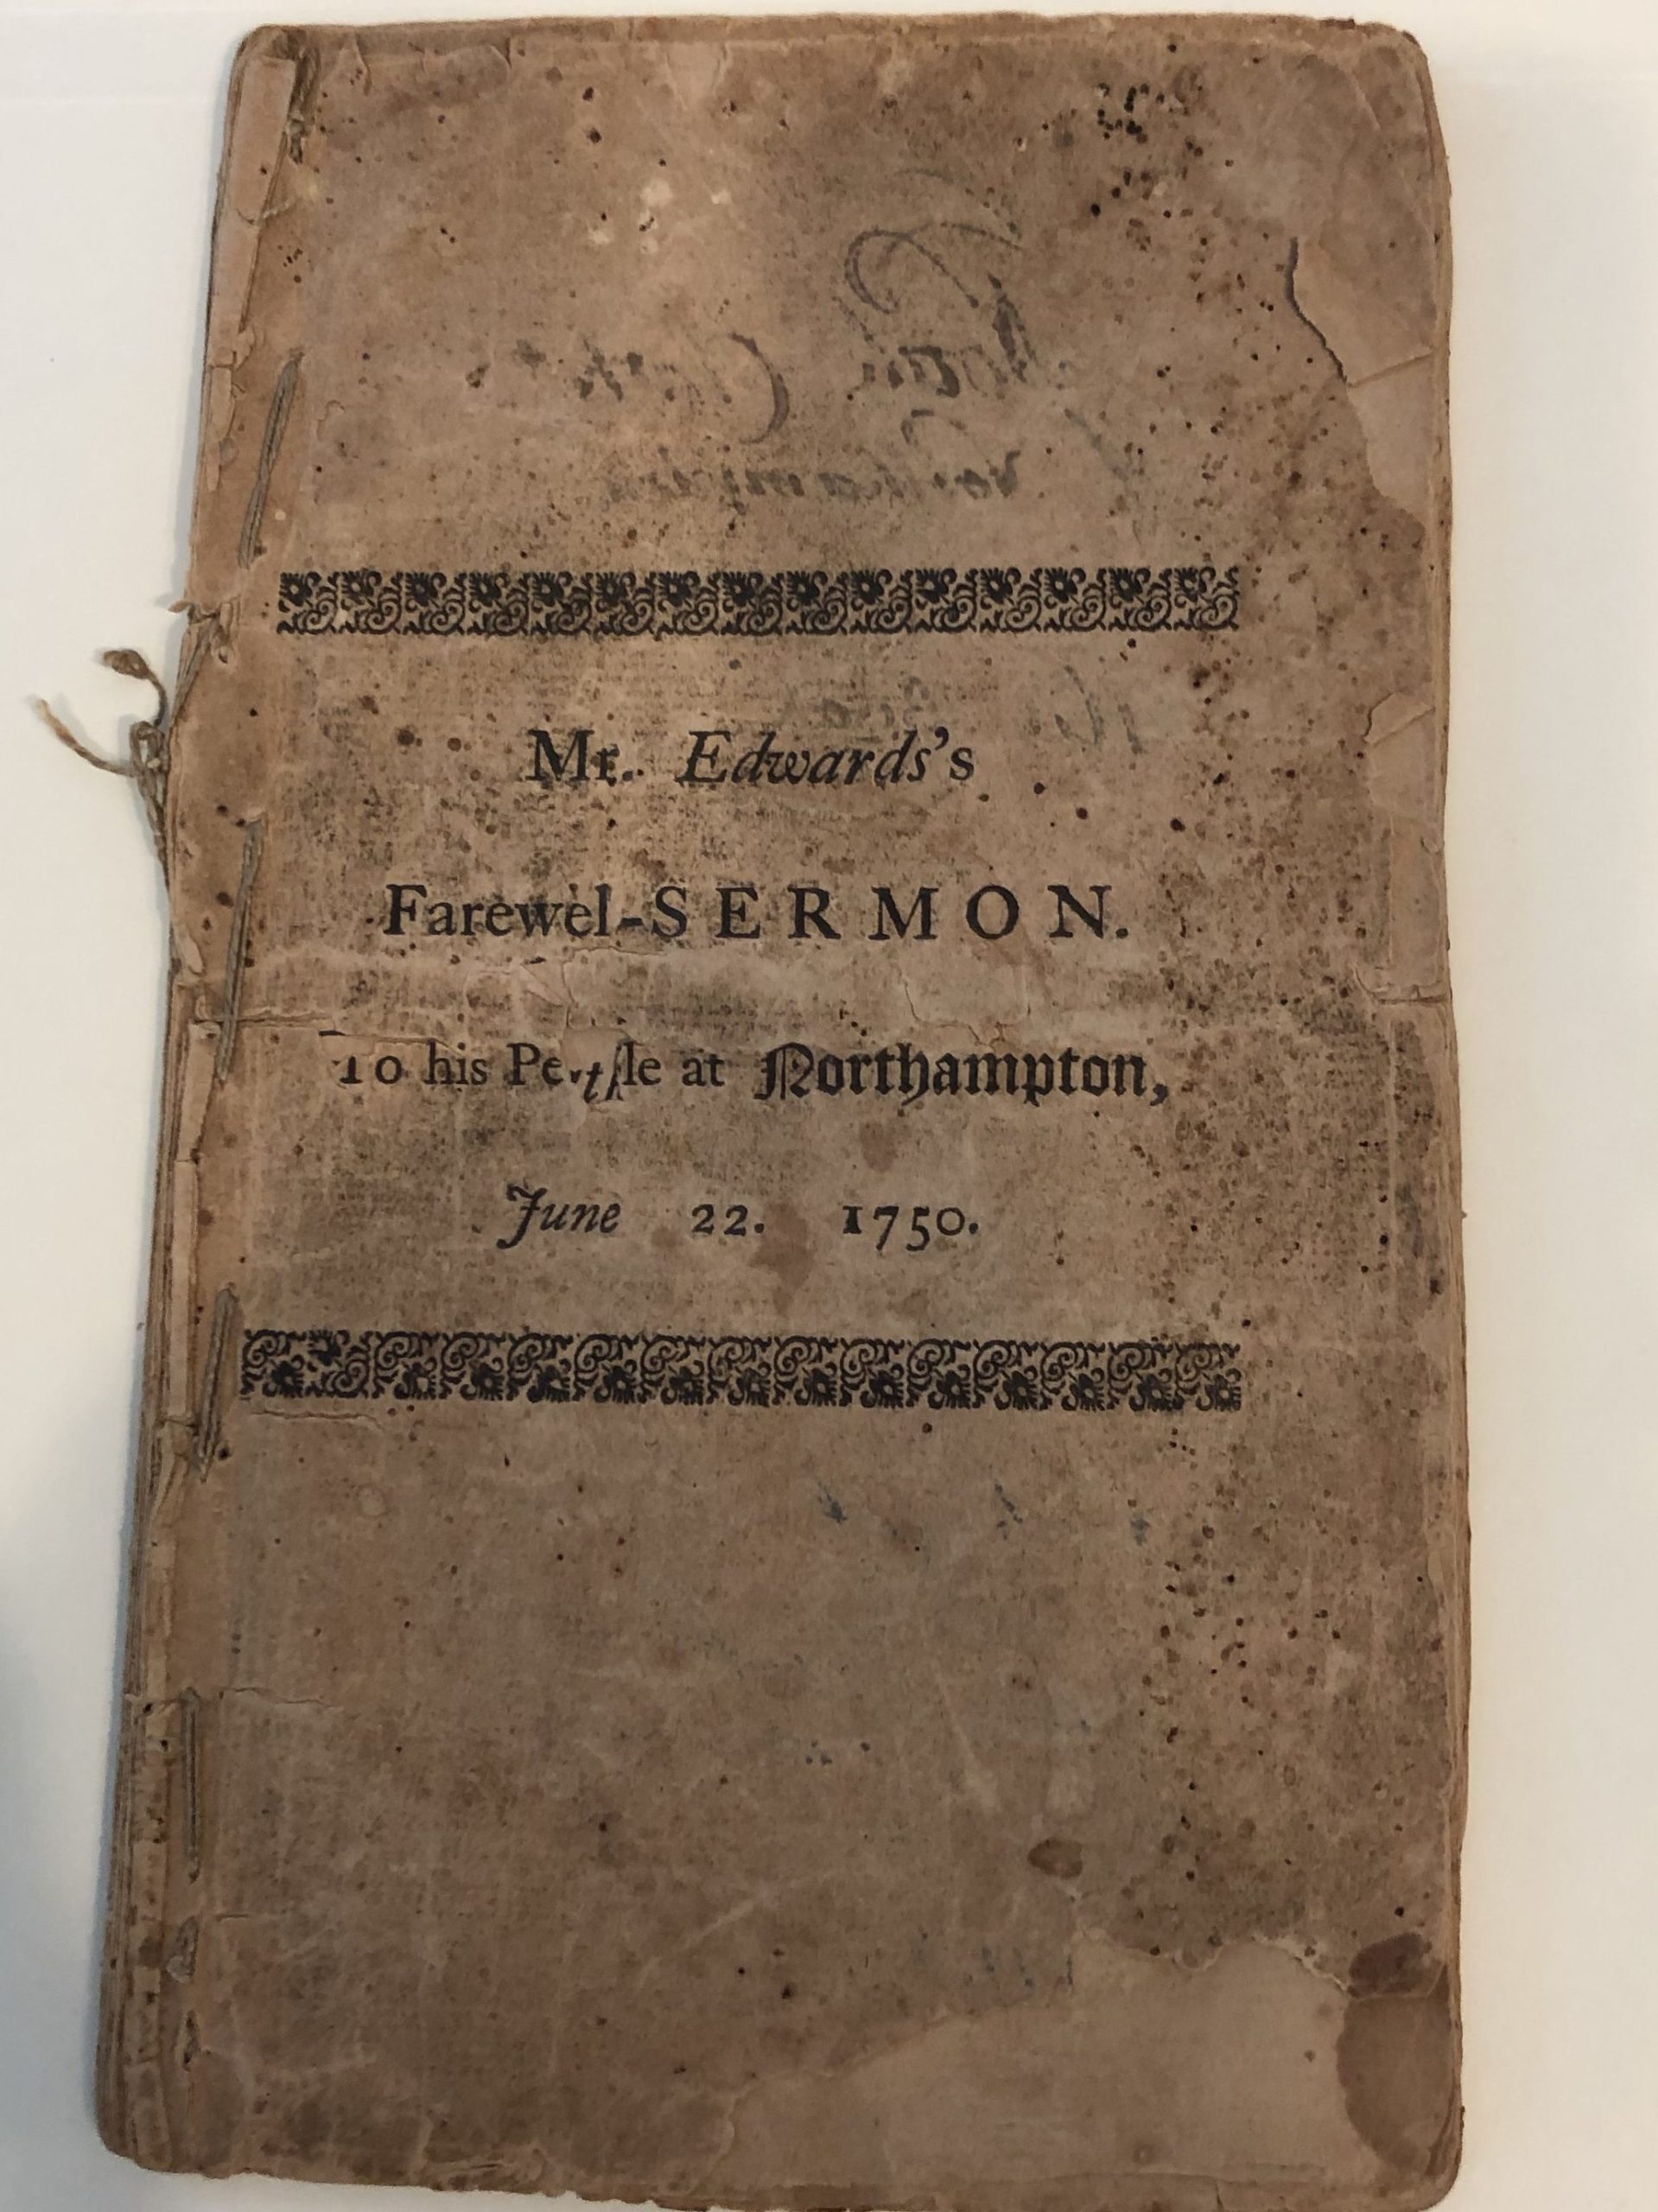 Mr. Edwards's
Farewel-SERMON.
To his People at Northampton,
June 22. 1750.